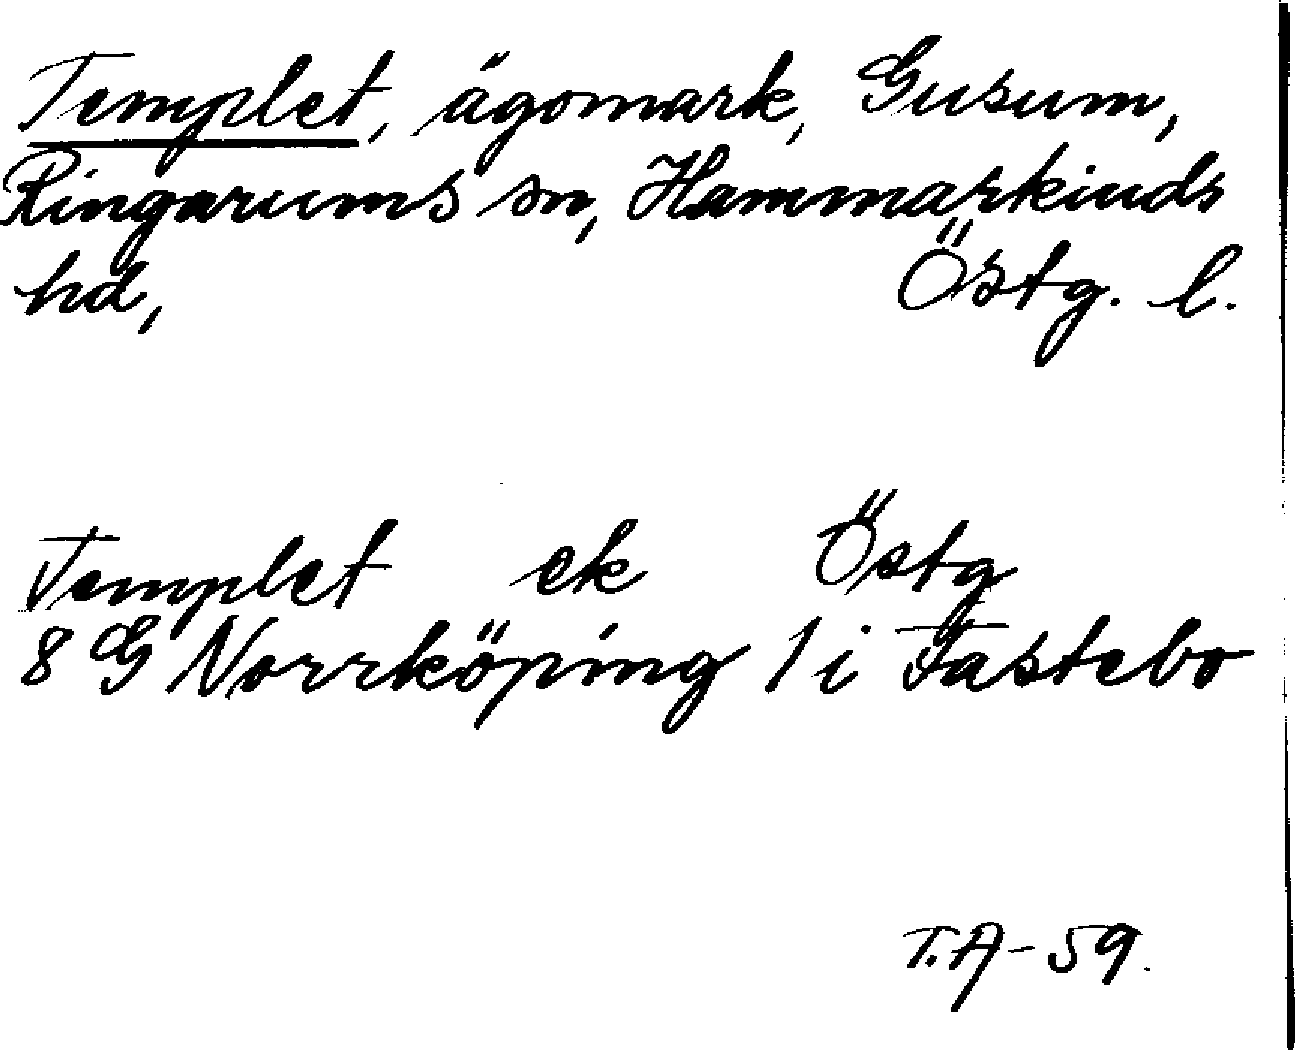 Templet, ägomark, Gusum,
Ringarums sn, Hammarkinds
hd, Östg. l.
Templet ek Östg
8 G Norrköping 1 i Fastebo
T.A-59.